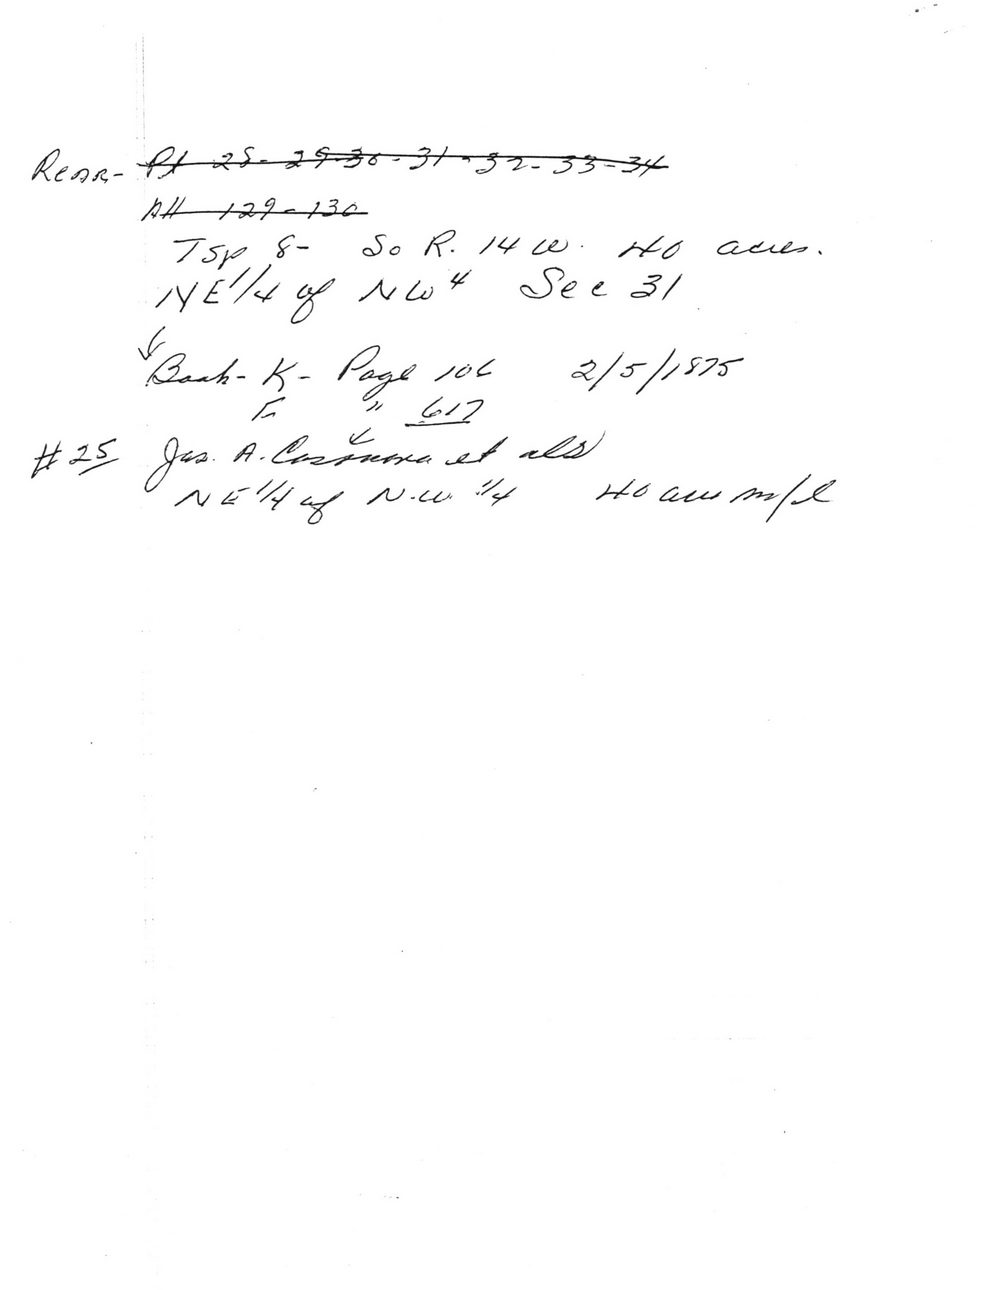 Rear- Pt 28- 29-30-31-32-33-34
All 129-130
Tsp 8- So R. 14 W. 40 acres.
NE 1/4 of NW 4 Sec 31
Book- K- Page 106 2/5/1875
F " 617
#25 Jas. A. Casanova et als
NE 1/4 of N.W. 1/4 40 acres m/l